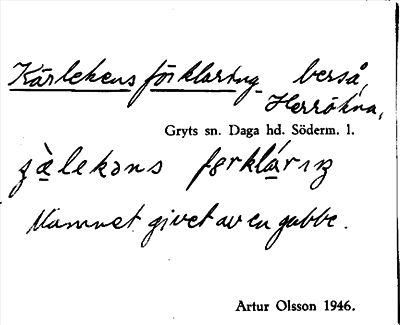 Kärlekens förklaring berså,
Herrökna,
Gryts sn. Daga hd. Söderm. l.
çà̱lekəns fərklá̱rıŋ
Namnet givet av en gubbe.
Artur Olsson 1946.